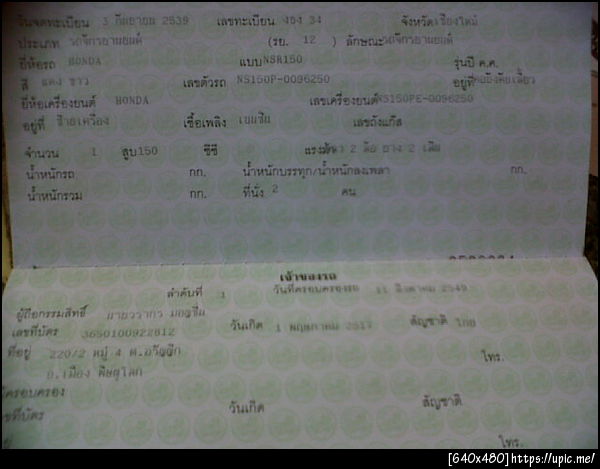 วันจดทะเบียน 3 กันยายน 2539 เลขทะเบียน 34 จังหวัด เชียงใหม่
ประเภท รถจักรยานยนต์ (รย. 12 ) ลักษณะ รถจักรยานยนต์
ยี่ห้อรถ HONDA แบบ NSR150 รุ่นปี ค.ศ.
สี แดง ขาว เลขตัวรถ NS150P-0096250 อยู่ที่
ยี่ห้อเครื่องยนต์ HONDA เลขเครื่องยนต์ NS150PE-0096250
อยู่ที่ ซ้ายเครื่อง เชื้อเพลิง เบนซิน เลขถังแก๊ส
จำนวน 1 สูบ 150 ซีซี แรงม้า 2 ล้อ ยาง 2 เส้น
น้ำหนักรถ กก. น้ำหนักบรรทุก/น้ำหนักลงเพลา กก.
น้ำหนักรวม กก. ที่นั่ง 2 คน
เจ้าของรถ
ลำดับที่ 1 วันที่ครอบครองรถ 11 สิงหาคม 2549
ผู้ถือกรรมสิทธิ์
เลขที่บัตร 3650100922812 วันเกิด 1 พฤษภาคม 2517 สัญชาติ ไทย
ที่อยู่ 220/2 หมู่ 4 ต.อรัญญิก โทร.
อ.เมือง พิษณุโลก
ครอบครอง
เลขที่บัตร วันเกิด สัญชาติ
โทร.
[640x480]https://upic.me/